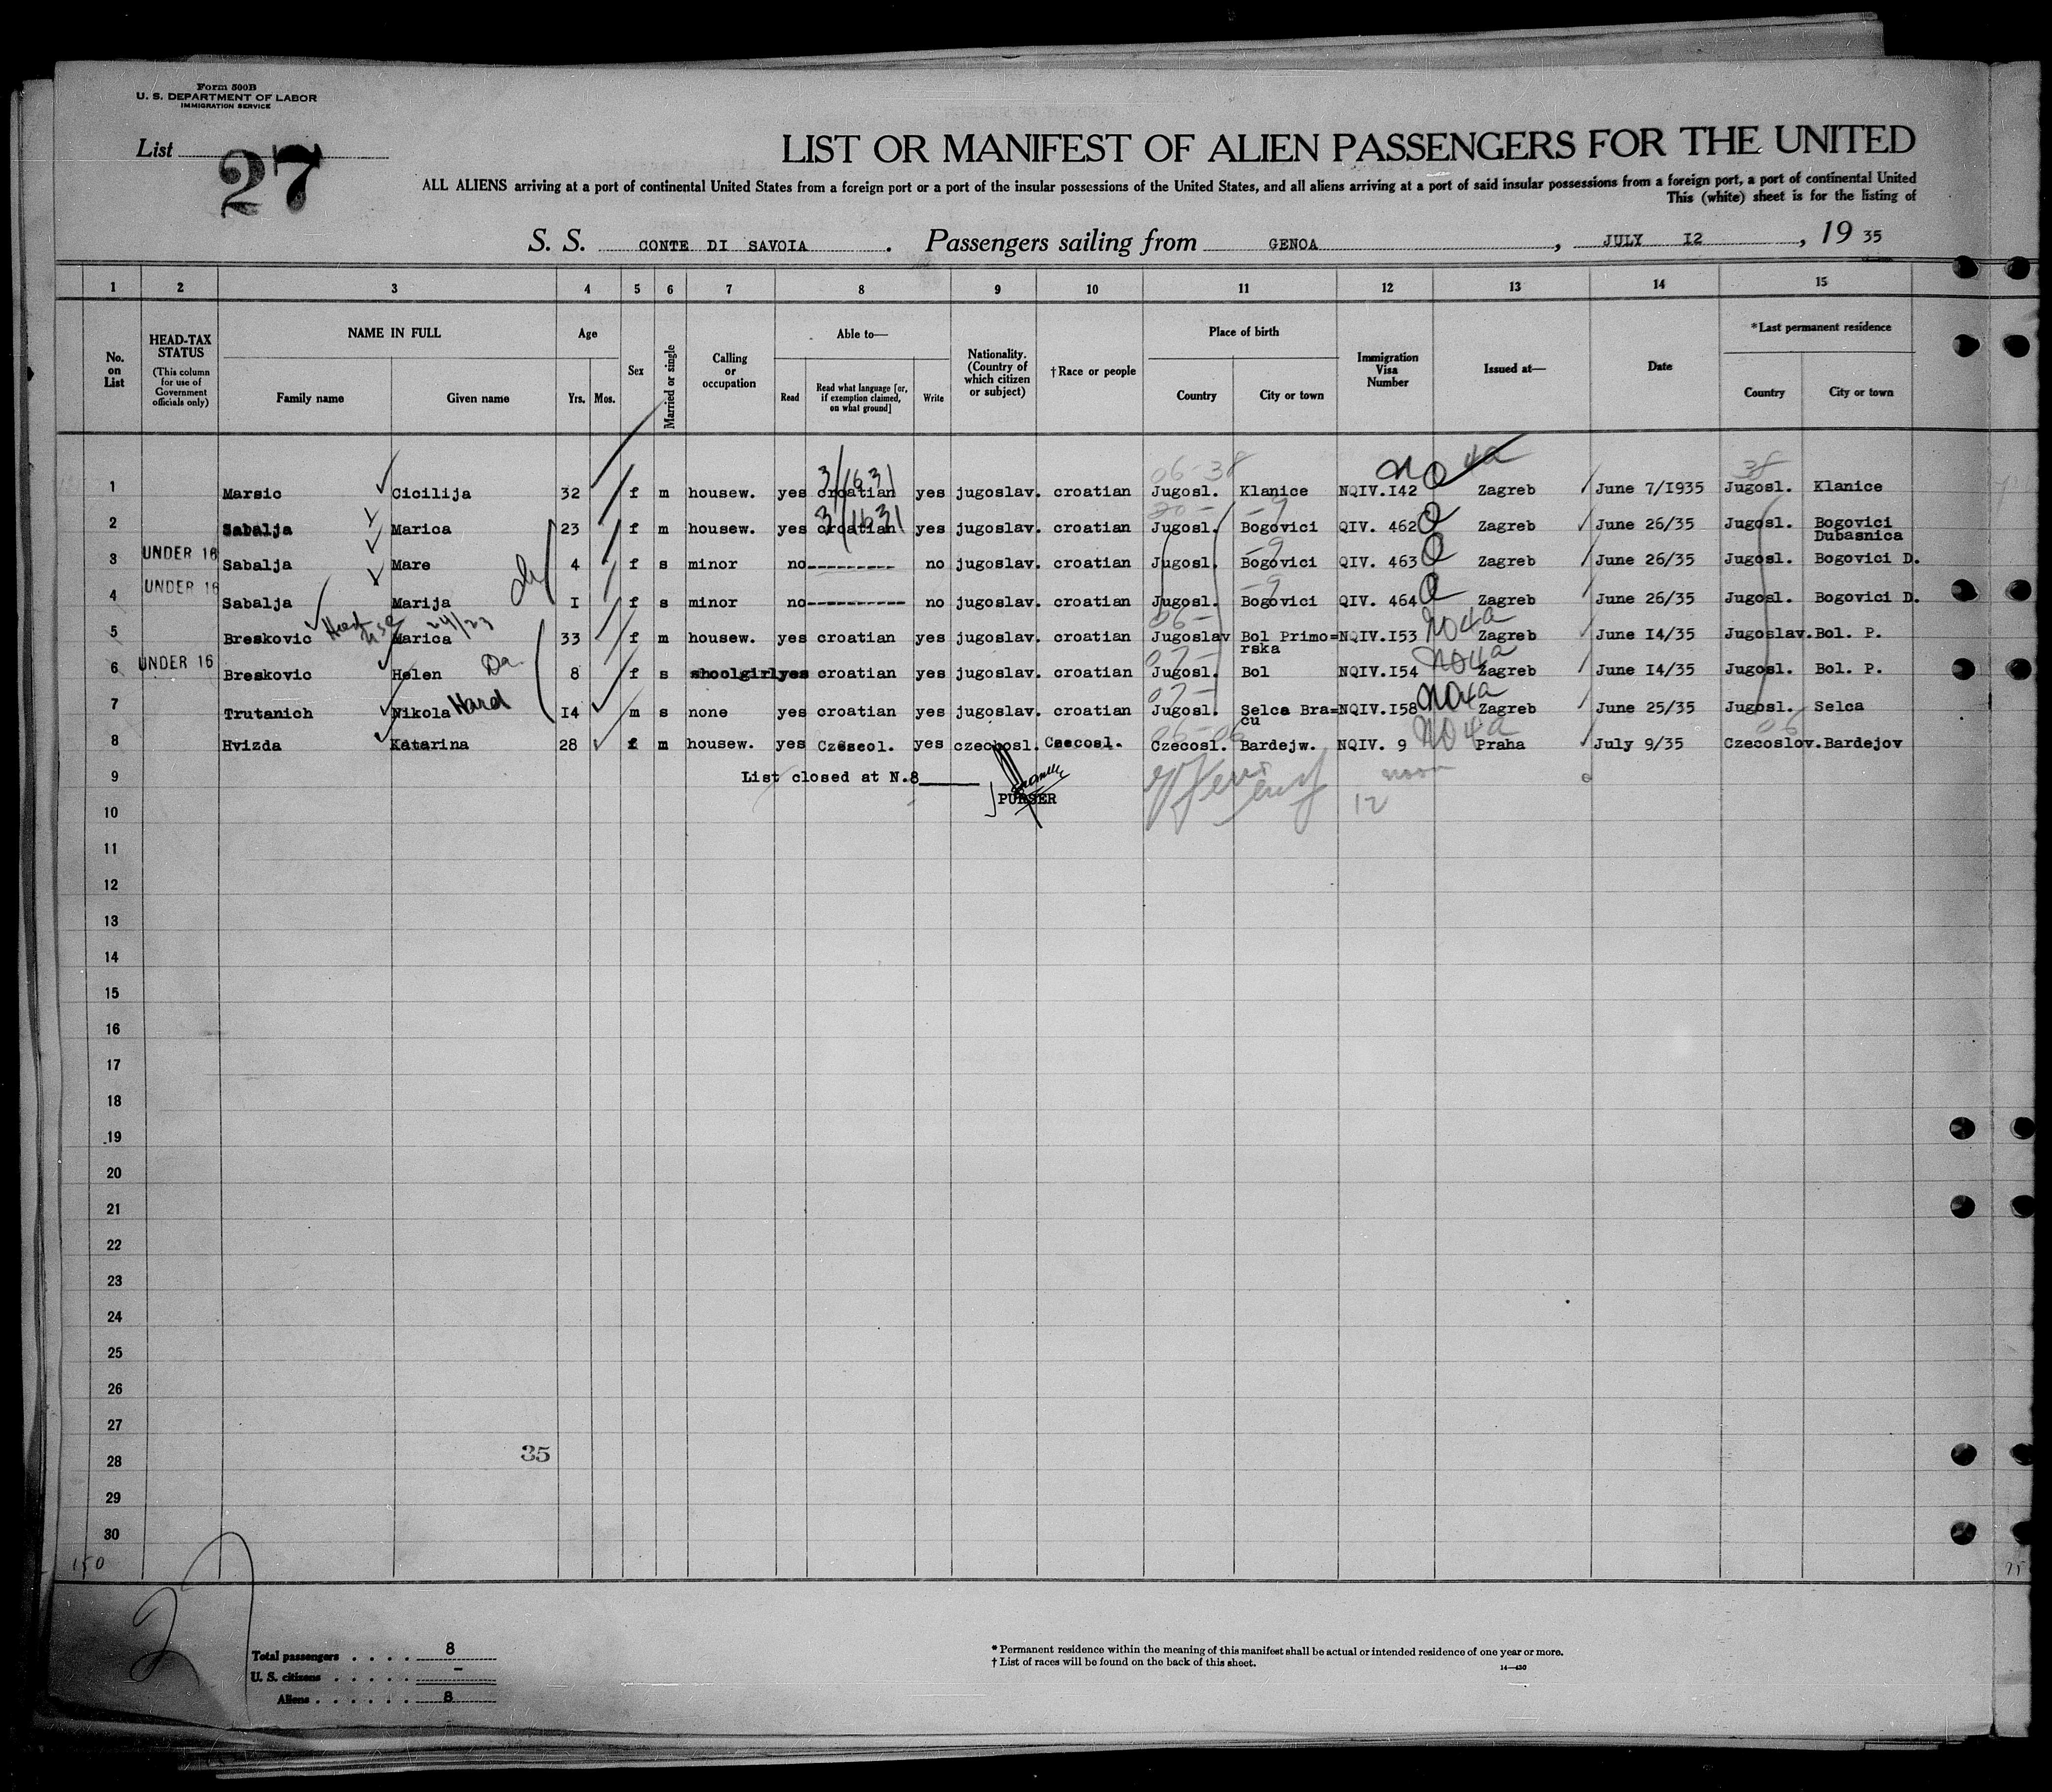 Form 500B
U. S. DEPARTMENT OF LABOR
IMMIGRATION SERVICE
List 27
LIST OR MANIFEST OF ALIEN PASSENGERS FOR THE UNITED
ALL ALIENS arriving at a port of continental United States from a foreign port or a port of the insular possessions of the United States, and all aliens arriving at a port of said insular possessions from a foreign port, a port of continental United
This (white) sheet is for the listing of
S. S. CONTE DI SAVOIA. Passengers sailing from GENOA, JULY I2, 19 35
1 2 3 4 5 6 7 8 9 10 11 12 13 14 15
No. on List
HEAD-TAX STATUS (This column for use of Government officials only)
NAME IN FULL
Family name Given name
Age
Yrs. Mos.
Sex
Married or single
Calling or occupation
Able to—
Read
Read what language [or, if exemption claimed, on what ground]
Write
Nationality. (Country of which citizen or subject)
†Race or people
Place of birth
Country City or town
Immigration Visa Number
Issued at—
Date
*Last permanent residence
Country City or town
06-38 NO 4a 38
3/1631
1 Marsic Cicilija 32 f m housew. yes croatian yes jugoslav. croatian Jugosl. Klanice NQIV.I42 Zagreb June 7/I935 Jugosl. Klanice
3/1631
2 Sabalja Marica 23 f m housew. yes croatian yes jugoslav. croatian Jugosl. Bogovici QIV. 462 Zagreb June 26/35 Jugosl. Bogovici Dubasnica
3 UNDER 16 Sabalja Mare 4 f s minor no---------- no jugoslav. croatian Jugosl. Bogovici QIV. 463 Zagreb June 26/35 Jugosl. Bogovici D.
4 UNDER 16 Sabalja Marija I f s minor no----------- no jugoslav. croatian Jugosl. Bogovici QIV. 464 Zagreb June 26/35 Jugosl. Bogovici D.
5 Breskovic Marica 33 f m housew. yes croatian yes jugoslav. croatian Jugoslav Bol Primo=rska NQIV.I53 NO4a Zagreb June I4/35 Jugoslav. Bol. P.
6 UNDER 16 Breskovic Helen Da 8 f s shoolgirl yes croatian yes jugoslav. croatian Jugosl. Bol NQIV.I54 NO4a Zagreb June I4/35 Jugosl. Bol. P.
7 Trutanich Nikola Hard I4 m s none yes croatian yes jugoslav. croatian Jugosl. Selca Bra=cu NQIV.I58 NO4a Zagreb June 25/35 Jugosl. Selca
8 Hvizda Katarina 28 f m housew. yes Czescol. yes czechosl. Czecosl. Czecosl. Bardejw. NQIV. 9 NO4a Praha July 9/35 Czecoslov. Bardejov
9 List closed at N.8
10 PURSER 12
11
12
13
14
15
16
17
18
19
20
21
22
23
24
25
26
27
28 35
29
30
150
27
Total passengers . . . . 8
U. S. citizens . . . . . –
Aliens . . . . . . 8
* Permanent residence within the meaning of this manifest shall be actual or intended residence of one year or more.
† List of races will be found on the back of this sheet.
14—430